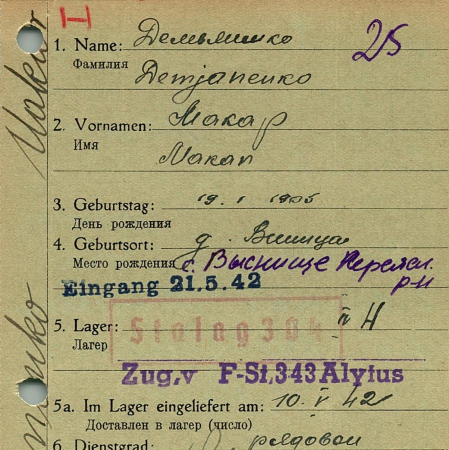 I
1. Name: Демьяненко
25
Фамилия
Demjanenko
2. Vornamen: Макар
Имя
Makar
3. Geburtstag: 19. I 1905
День рождения
4. Geburtsort: д. Вишница
Место рождения с. Выснище Перемл.
р-н
Eingang 21.5.42
5. Lager: Stalag 304 IV H
Лагер
Zug.v F-St.343 Alytus
5a. Im Lager eingeliefert am: 10. V 42
Доставлен в лагер (число)
6. Dienstgrad: рядовой
Makar